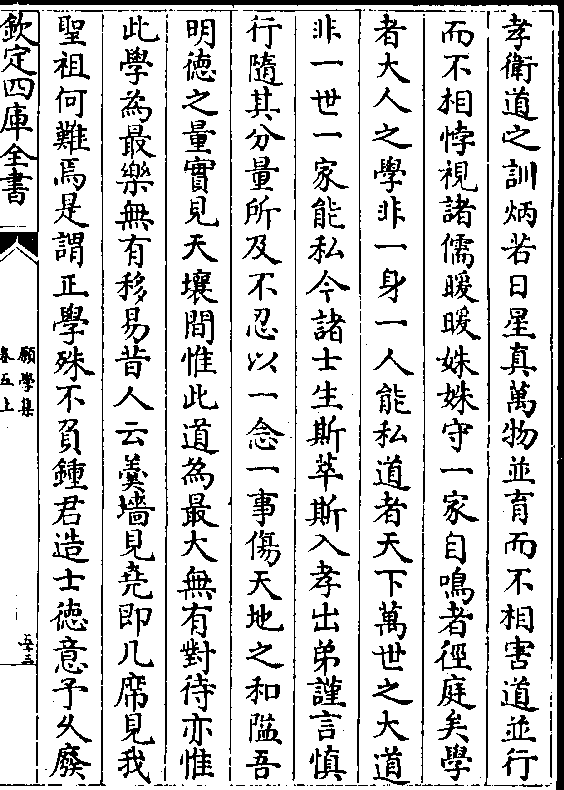 孝衛道之訓炳若日星真萬物並育而不相害道並行
而不相悖視諸儒暖暖姝姝守一家自鳴者徑庭矣學
者大人之學非一身一人能私道者天下萬世之大道
非一世一家能私今諸士生斯萃斯入孝出弟謹言慎
行隨其分量所及不忍以一念一事傷天地之和隘吾
明德之量實見天壤間惟此道為最大無有對待亦惟
此學為最樂無有移易昔人云羮墻見堯即几席見我
聖祖何難焉是謂正學殊不負鍾君造士德意予乆廢
欽定四庫全書
願學集
卷五上